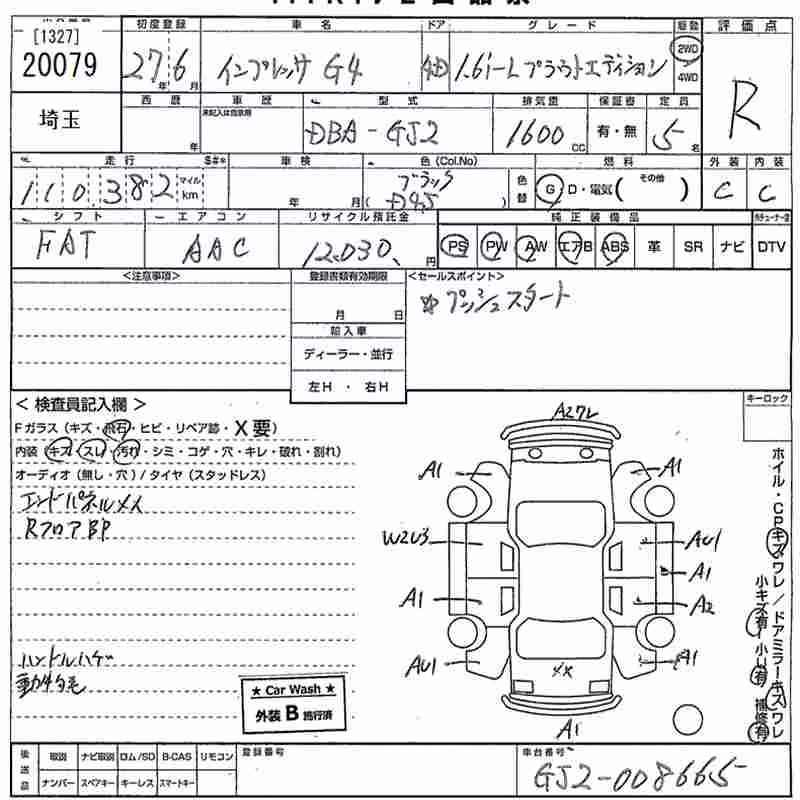 [1327]
20079
初度登録
車名
ドア
グレード
駆動
評価点
27年6月
インプレッサ G4
4D
1.6i-L プラウドエディション
2WD
4WD
R
埼玉
西歴
年
車歴
未記入は自家用
型式
DBA-GJ2
排気量
1600 CC
保証書
有・無
定員
5名
走行
S#*
110,382
マイル
km
車検
年 月
色(Col.No)
ブラック
( D45 )
色替
燃料
G D・電気( その他 )
外装
C
内装
C
シフト
FAT
エアコン
AAC
リサイクル預託金
12,030. 円
純正装備品
PS PW AW エアB ABS 革 SR ナビ DTV
<注意事項>
登録書類有効期限
月 日
輸入車
ディーラー・並行
左H ・ 右H
<セールスポイント>
☆プッシュスタート
キーロック
< 検査員記入欄 >
Fガラス(キズ・飛石・ヒビ・リペア跡・X要)
内装(キズ・スレ・汚れ・シミ・コゲ・穴・キレ・破れ・割れ)
オーディオ(無し・穴)/タイヤ(スタッドレス)
エンドパネルメメ
RフロアBP
ハンドルハゲ
A27レ
A1
A1
W2U3
AU1
A1
A1
A2
AU1
A1
XX
A1
ホイル・CPキズワレ/ドアミラーキズワレ
小キズ有・小U有・補修有
★ Car Wash ★
外装 B 施行済
後送品
取説 ナビ取説 ロム/SD B-CAS リモコン
ナンバー スペアキー キーレス スマートキー
登録番号
車台番号
GJ2-008665